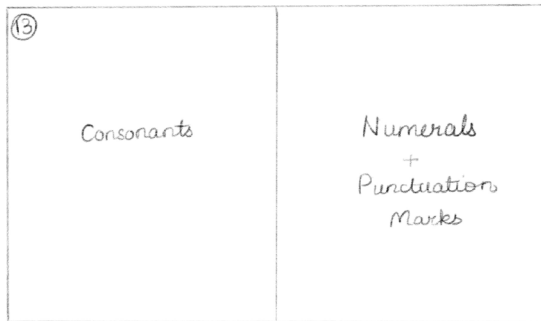 13
Consonants
Numerals
+
Punctuation
Marks